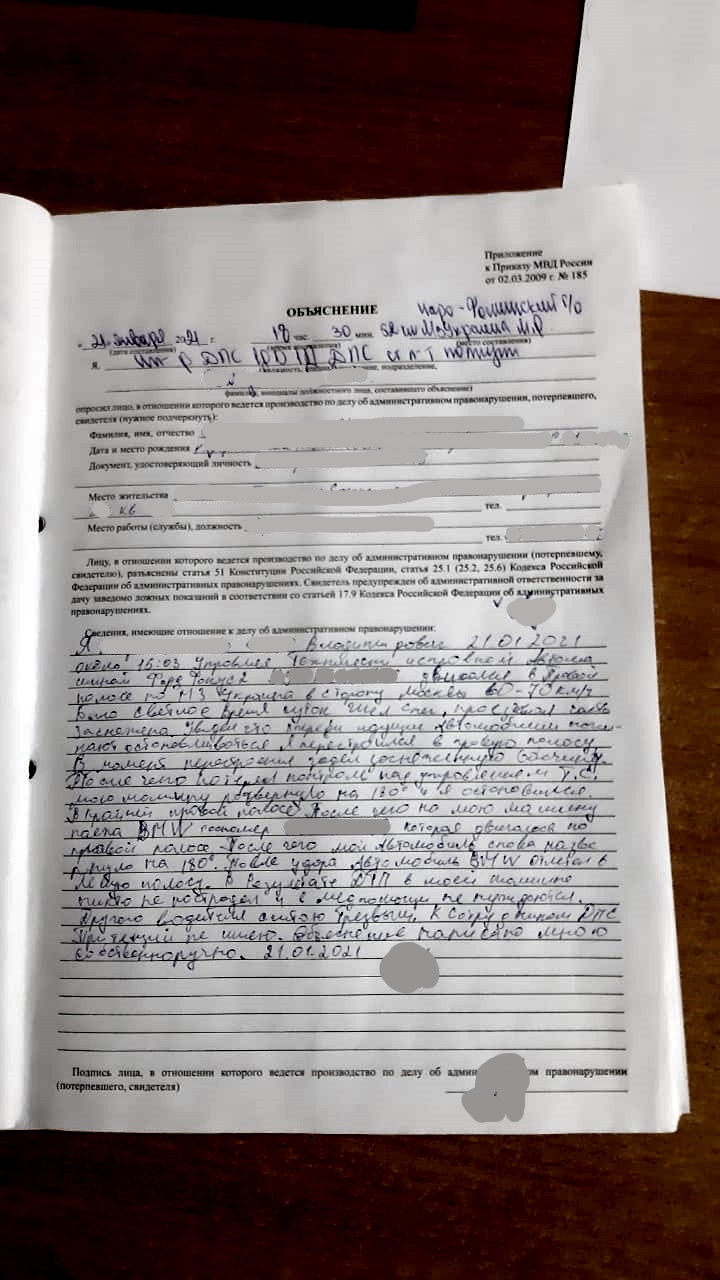 Приложение
к Приказу МВД России
от 02.03.2009 г. № 185
ОБЪЯСНЕНИЕ
Наро-Фоминский г/о
« 21 » января 2021 г. 18 час. 30 мин. 52 км М3 Украина М.О.
(дата составления) (время составления) (место составления)
Я, ДПС ДПС ст. л-т полиции
должность, подразделение,
фамилия, инициалы должностного лица, составившего объяснение)
опросил лицо, в отношении которого ведется производство по делу об административном правонарушении, потерпевшего,
свидетеля (нужное подчеркнуть):
Фамилия, имя, отчество
Дата и место рождения
Документ, удостоверяющий личность
Место жительства
кв тел.
Место работы (службы), должность
тел.
Лицу, в отношении которого ведется производство по делу об административном правонарушении (потерпевшему,
свидетелю), разъяснены статья 51 Конституции Российской Федерации, статья 25.1 (25.2, 25.6) Кодекса Российской
Федерации об административных правонарушениях. Свидетель предупрежден об административной ответственности за
дачу заведомо ложных показаний в соответствии со статьей 17.9 Кодекса Российской Федерации об административных
правонарушениях.
Сведения, имеющие отношение к делу об административном правонарушении:
Я, Владимирович 21.01.2021
около 16:03 управляя технически исправной автома
шиной Форд Фокус 2 двигался в правой
полосе по М3 Украина в сторону Москвы 60-70 км/ч
Было светлое время суток шел снег, проезжая часть
заснежена. Увидел что впереди идущие автомобили начи-
нают останавливаться я перестроился в правую полосу.
В момент перестроения задел заснеженную обочину.
После чего потерял контроль над управлением Т.С.
мою машину развернуло на 180° и я остановился.
В крайней правой полосе. После чего на мою машину
наехал BMW госномер которая двигалось по
правой полосе. После чего мой автомобиль снова развер
нуло на 180°. После удара автомобиль BMW отлетел в
левую полосу. В результате ДТП в моей машине
никто не пострадал и в медпомощи не нуждаются.
Другого водителя считаю трезвым. К сотрудникам ДПС
притензий не имею. Объеснение написано мною
собственноручно. 21.01.2021
Подпись лица, в отношении которого ведется производство по делу об правонарушении
(потерпевшего, свидетеля)